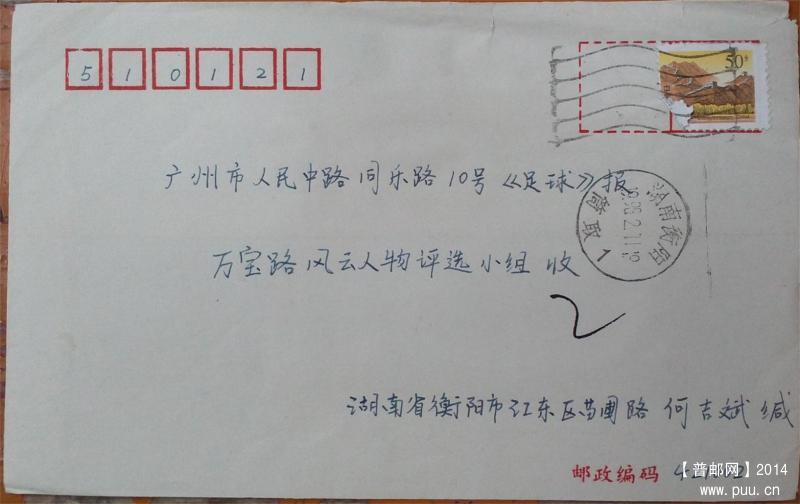 510121
50
广州市人民中路同乐路10号《足球》报
万宝路风云人物评选小组 收
2
湖南省衡阳市江东区苗圃路 何吉斌 缄
邮政编码
【普邮网】2014
www.puu.cn